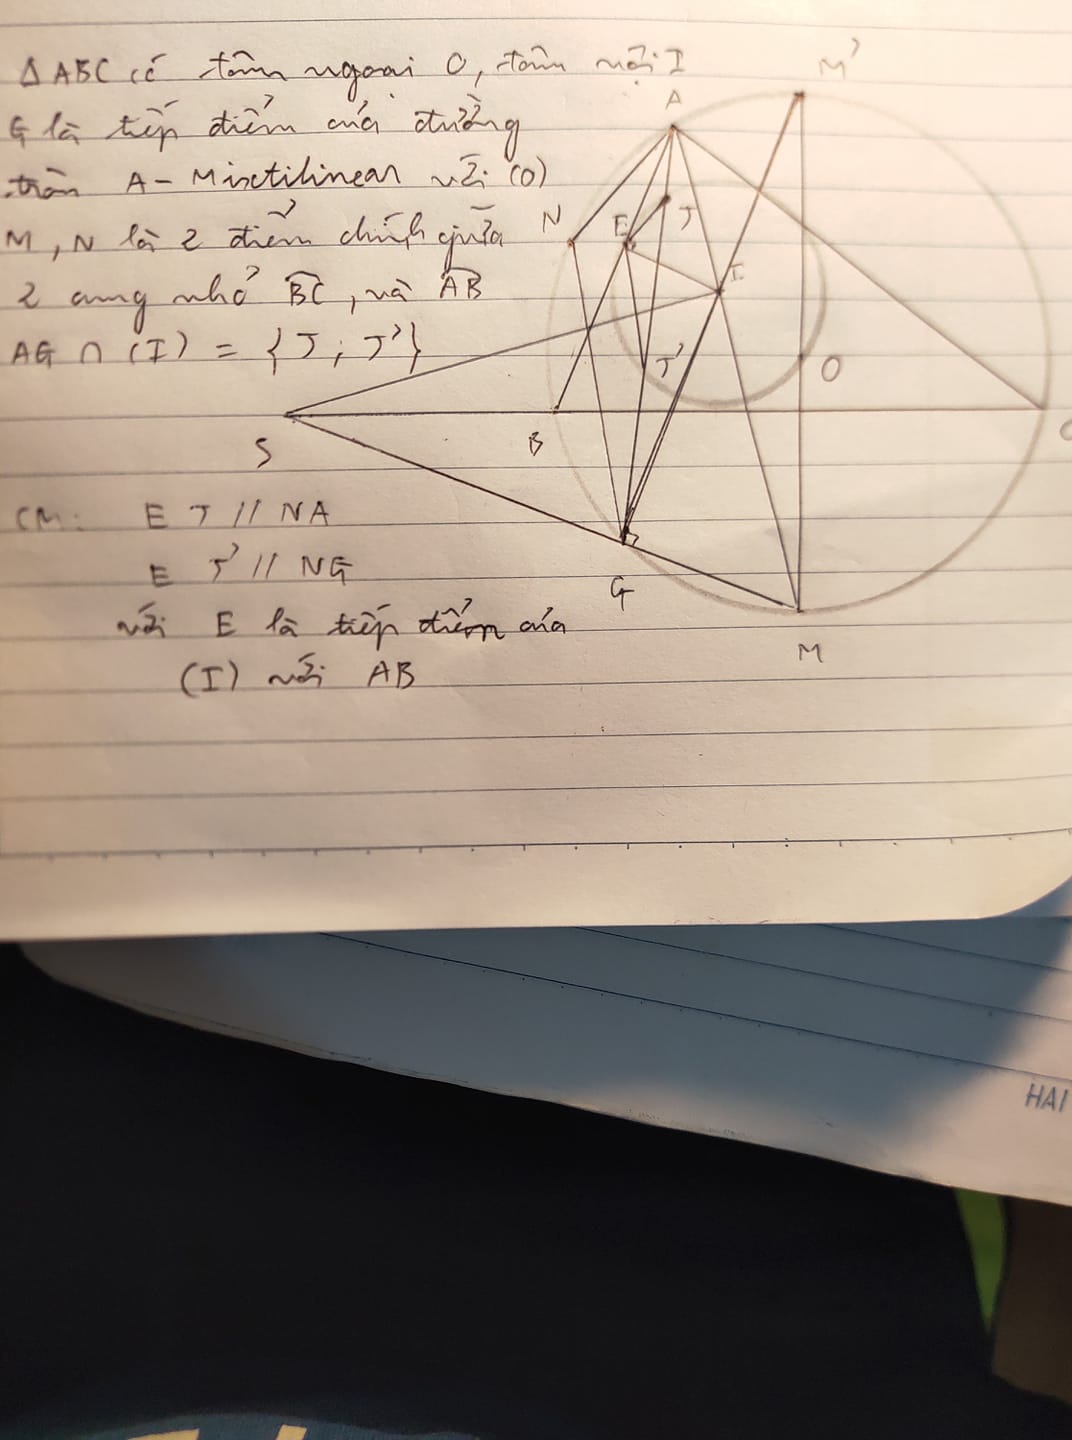 Δ ABC có tâm ngoại O, tâm nội I
G là tiếp điểm của đường
tròn A - Mixtilinear với (O)
M, N là 2 điểm chính giữa
2 cung nhỏ BC, và AB
AG ∩ (I) = {J; J'}
CM: EJ // NA
E J' // NG
với E là tiếp điểm của
(I) với AB
M'
A
N
E
J
I
J'
O
S
B
C
G
M
HAI